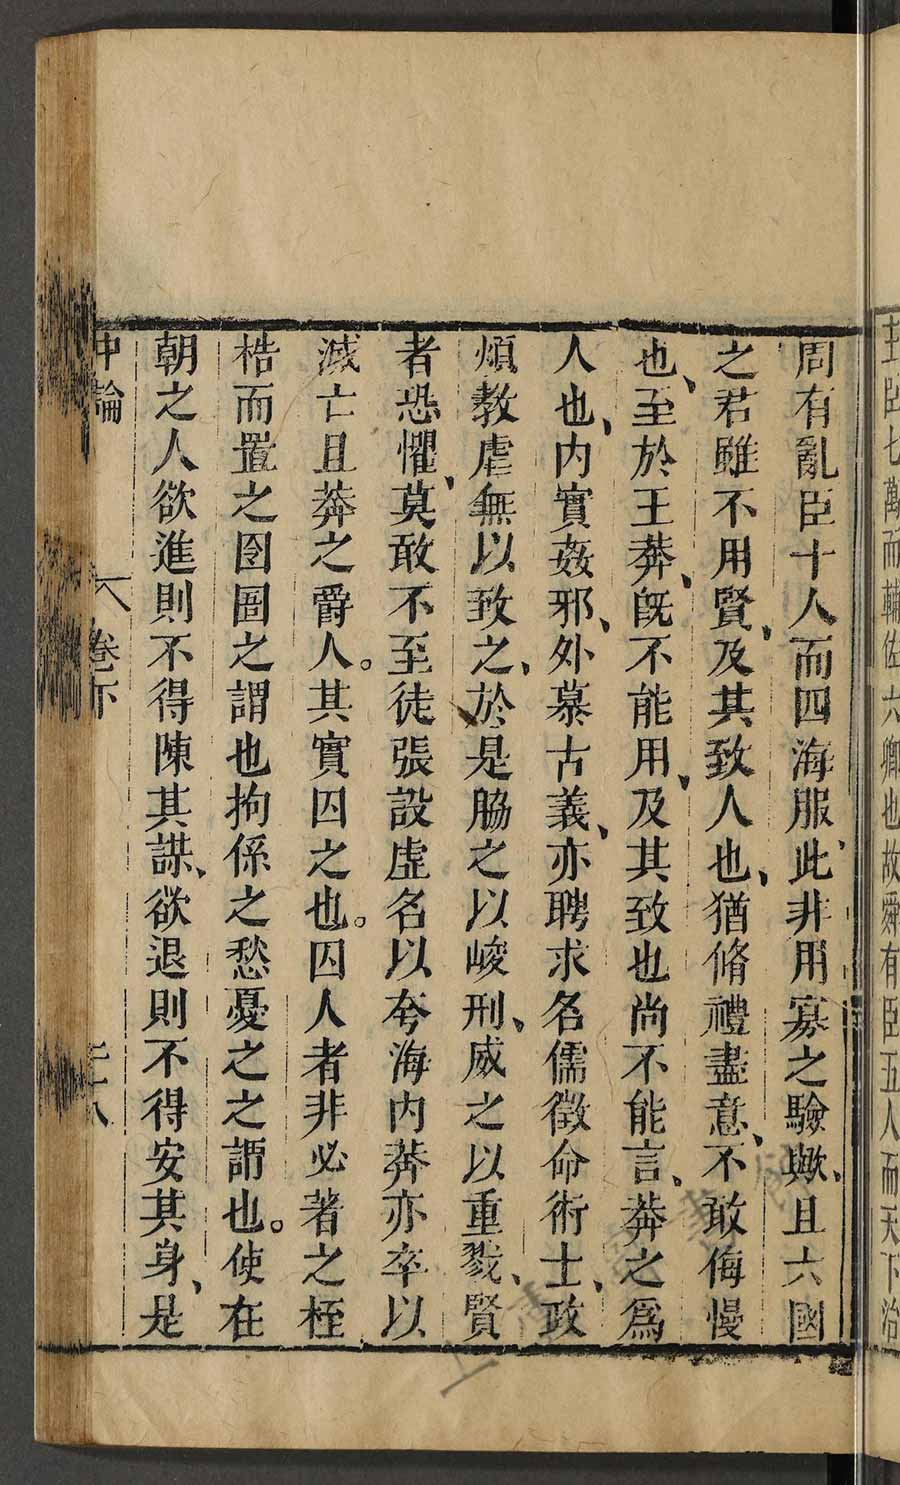 封臣七萬而輔佐六卿也故舜有臣五人而天下治
周有亂臣十人而四海服、此非用寡之驗歟、且六國
之君雖不用賢、及其致人也、猶脩禮盡意、不敢侮慢
也、至於王莽、旣不能用、及其致也尚不能言、莽之爲
人也、内實姦邪、外慕古義、亦聘求名儒徵命術士、政
煩教虐無以致之、於是脇之以峻刑、威之以重戮、賢
者恐懼、莫敢不至徒張設虛名以夸海内莽亦卒以
滅亡且莽之爵人。其實囚之也。囚人者非必著之桎
梏而置之囹圄之謂也拘係之愁憂之之謂也。使在
朝之人欲進則不得陳其謀、欲退則不得安其身、是
中論 卷下 二十八